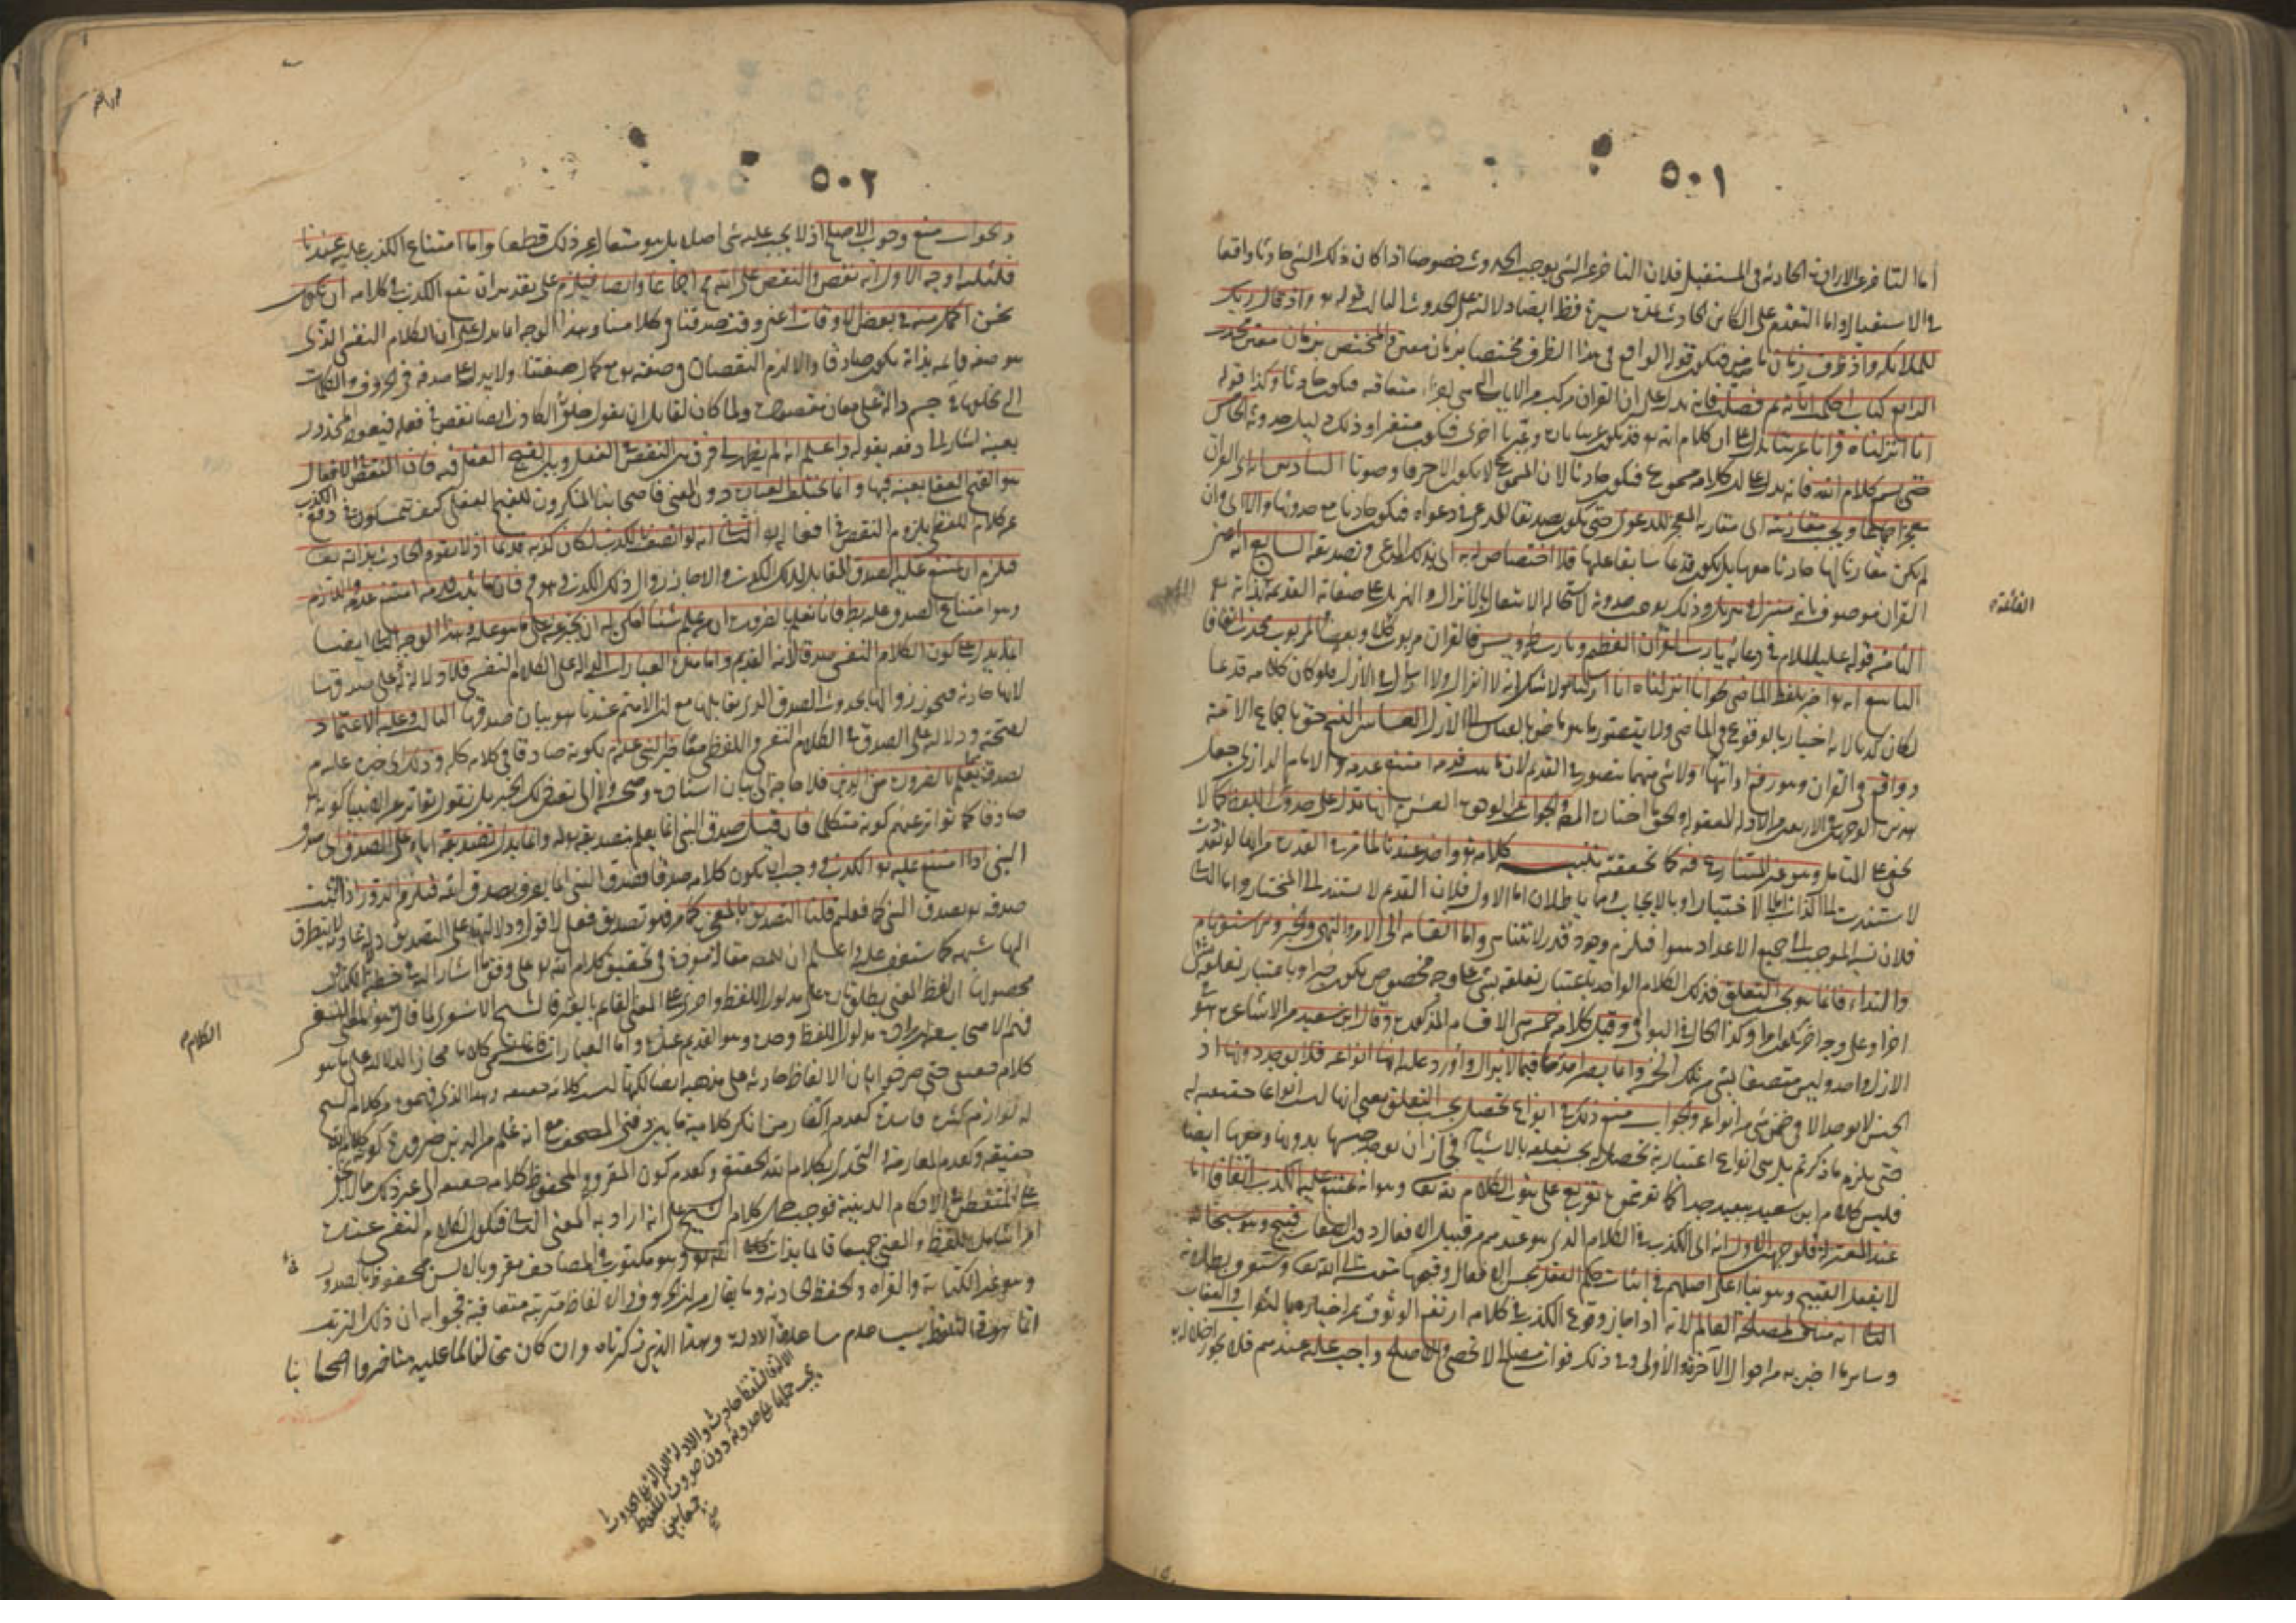 ٥٠١
أما التأخر عن الإرادة الحادثة في المستقبل فلأن التأخر عن الشيء يوجب الحدوث خصوصا إذا كان ذلك الشيء حادثا واقعا
في الاستقبال وأما التقدم على الكائن الحادث بمدة يسيرة فظ أيضا دلالته على الحدوث الثالث قوله تع وإذ قال ربك
للملائكة وإذ ظرف زمان ماض فيكون قوله الواقع في هذا الظرف مختصا بزمان معين والمختص بزمان معين محدث
الرابع كتاب أحكمت آياته ثم فصلت فإنه يدل على أن القرآن مركب من الآيات التي هي أجزاء متعاقبة فيكون حادثا وكذا قوله
إنا أنزلناه قرآنا عربيا يدل على أن كلام الله تع قد يكون عربيا تارة وعبريا أخرى فيكون متغيرا وذلك دليل حدوثه الخامس
حتى يسمع كلام الله فإنه يدل على أن كلامه مسموع فيكون حادثا لأن المسموع لا يكون إلا حرفا وصوتا السادس إن القرآن
معجز إجماعا ويجب مقارنته أي مقارنة المعجز للدعوى حتى يكون تصديقا للمدعي في دعواه فيكون حادثا مع حدوثها وإلا أي وإن
لم يكن مقارنا لها حادثا معها بل يكون قديما سابقا عليها فلا اختصاص له به أي بذلك المدعي وتصديقه السابع أنه أعني
القرآن موصوف بأنه منزل وتنزيل وذلك يوجب حدوثه لاستحالة الانتقال بالإنزال والتنزيل على صفاته القديمة بذاته تع
القائمة
الثامن قوله عليه السلام في دعائه يا رب القرآن العظيم ويا رب طه ويس فالقرآن مربوب كلا وبعضا والمربوب محدث اتفاقا
التاسع أنه تع أخبر بلفظ الماضي نحو إنا أنزلناه إنا أرسلنا ولا شك أنه لا إنزال ولا إرسال في الأزل فلو كان كلامه قديما
لكان كذبا لأنه إخبار بالوقوع في الماضي ولا يتصور ما هو ماض بالقياس إلى الأزل العاشر النسخ حق بإجماع الأمة
وواقع في القرآن وهو رفع أو انتهاء ولا شيء منهما يتصور في القديم لأن ما ثبت قدمه امتنع عدمه
كلامه تع واحد عندنا لما مر في القدرة من أنها لو تعددت
لاستندت إلى الذات إما بالاختيار أو بالإيجاب وهما باطلان أما الأول فلأن القديم لا يستند إلى المختار وأما الثاني
فلأن نسبة الموجب إلى جميع الأعداد سواء فيلزم وجود قدر لا تتناهى وأما انقسامه إلى الأمر والنهي والخبر والاستفهام
والنداء فإنما هو بحسب التعلق فذلك الكلام الواحد باعتبار تعلقه بشيء على وجه مخصوص يكون خبرا وباعتبار تعلقه بشيء
آخر أو على وجه آخر يكون أمرا وكذا الحال في البواقي وقيل كلامه خمسة هي الأقسام المذكورة وقال ابن سعيد من الأشاعرة هو في
الأزل واحد وليس متصفا بشيء من تلك الخمسة وإنما يصير أحدها فيما لا يزال وأورد عليه أنها أنواعه فلا يوجد دونها إذ
الجنس لا يوجد إلا في ضمن شيء من أنواعه والجواب منع ذلك في أنواع تحصل بحسب التعلق يعني أنها ليست أنواعا حقيقية له
حتى يلزم ما ذكرتم بل هي أنواع اعتبارية تحصل له بحسب تعلقه بالأشياء فجاز أن يوجد جنسها بدونها ومعها أيضا
فليس كلام ابن سعيد ببعيد جدا كما توهموه تفريع على ثبوت الكلام لله تعالى وهو أنه يمتنع عليه الكذب اتفاقا أما
عند المعتزلة فلوجهين الأول أنه أي الكذب في الكلام الذي هو عندهم من قبيل الأفعال دون الصفات قبيح وهو سبحانه
لا يفعل القبيح وهو بناء على أصلهم في إثبات حكم العقل بحسن الأفعال وقبحها مقيسا إلى الله تعالى وستعرف بطلانه
الثاني أنه مناف لمصلحة العالم لأنه إذا جاز وقوع الكذب في كلامه ارتفع الوثوق عن إخباره بالثواب والعقاب
وسائر ما أخبر به من أحوال الآخرة والأولى وفي ذلك فوات مصالح لا تحصى والأصلح واجب عليه عندهم فلا يجوز إخلاله به
٥٠٢
والجواب منع وجوب الأصلح إذ لا يجب عليه شيء أصلا بل هو متعال عن ذلك قطعا وأما امتناع الكذب عليه عندنا
فلثلثة أوجه الأول أنه نقص والنقص على الله تع مح إجماعا وأيضا فيلزم على تقدير أن يقع الكذب في كلامه أن نكون
نحن أكمل منه في بعض الأوقات أعني وقت صدقنا في كلامنا وهذا الوجه إنما يدل على أن الكلام النفسي الذي
هو صفة قائمة بذاته يكون صادقا وإلا لزم النقصان في صفته مع كمال صفتنا ولا يدل على صدقه في الحروف والكلمات
التي يخلقها في جسم دالة على معان مقصودة ولما كان لقائل أن يقول خلق الكاذب أيضا نقص في فعله فيعود المحذور
بعينه أشار إلى دفعه بقوله واعلم أنه لم يظهر لي فرق بين النقص في الفعل وبين القبح العقلي فيه فإن النقص في الأفعال
هو القبح العقلي بعينه فيها وإنما تختلف العبارة دون المعنى فأصحابنا المنكرون للقبح العقلي كيف يتمسكون في دفع الكذب
عن الكلام اللفظي بلزوم النقص في أفعاله تع الثاني أنه لو اتصف بالكذب لكان كذبه قديما إذ لا يقوم الحادث بذاته تعالى
فيلزم أن يمتنع عليه الصدق المقابل لذلك الكذب وإلا جاز زوال ذلك الكذب وهو مح فإن ما ثبت قدمه امتنع عدمه واللازم
وهو امتناع الصدق عليه بط فإنا نعلم بالضرورة أن من علم شيئا أمكن له أن يخبر عنه على ما هو عليه وهذا الوجه الثاني أيضا
إنما يدل على كون الكلام النفسي صدقا لأنه القديم وأما هذه العبارات الدالة على الكلام النفسي فلا دلالة له على صدقها
لأنها حادثة فيجوز زوالها بحدوث الصدق الذي يقابلها مع أن الأهم عندنا هو بيان صدقها الثالث وعليه الاعتماد
لصحته ودلالته على الصدق في الكلام النفسي واللفظي معا خبر النبي عليه السلام بكونه صادقا في كلامه كله وذلك أي خبره عليه م
بصدقه يعلم بالضرورة من الدين فلا حاجة إلى بيان إسناده وصحته ولا إلى تعيين ذلك الخبر بل نقول تواتر عن الأنبياء كونه تع
صادقا كما تواتر عنهم كونه متكلما فإن قيل صدق النبي إنما يعلم بتصديق الله له وإنما يدل تصديقه إياه على الصدق أي صدق
النبي إذا امتنع عليه تع الكذب ووجب أن يكون كلامه صدقا فصدق النبي إنما يعرف بصدق الله فيلزم الدور إذا أثبت
صدقه تع بصدق النبي كما فعلتم قلنا التصديق بالمعجزة كما مر فهو تصديق فعلي لا قولي ودلالتها على التصديق دلالة عادية لا يتطرق
إليها شبهة كما ستقف عليه واعلم أن للمصنف مقالة مفردة في تحقيق كلام الله تع على وفق ما أشار إليه في خطبة الكتاب
محصولها أن لفظ المعنى يطلق تارة على مدلول اللفظ وأخرى على المعنى القائم بالغير فالشيخ الأشعري لما قال الكلام هو المعنى النفسي
الكلام
فهم الأصحاب منه أن مراده مدلول اللفظ وحده وهو القديم عنده وأما العبارات فإنما تسمى كلاما مجازا لدلالتها على ما هو
كلام حقيقي حتى صرحوا بأن الألفاظ حادثة على مذهبه أيضا لكنها ليست كلامه حقيقة وهذا الذي فهموه من كلام الشيخ
له لوازم كثيرة فاسدة كعدم إكفار من أنكر كلامية ما بين دفتي المصحف مع أنه علم من الدين ضرورة كونه كلام الله
حقيقة وكعدم المعارضة والتحدي بكلام الله الحقيقي وكعدم كون المقروء والمحفوظ كلامه حقيقة إلى غير ذلك مما لا يخفى
على المتفطن في الأحكام الدينية فوجب حمل كلام الشيخ على أنه أراد به المعنى الثاني فيكون الكلام النفسي عنده
أمرا شاملا للفظ والمعنى جميعا قائما بذات الله تع وهو مكتوب في المصاحف مقروء بالألسن محفوظ بالصدور
وهو غير الكتابة والقراءة والحفظ الحادثة وما يقال من أن الحروف والألفاظ مترتبة متعاقبة فجوابه أن ذلك الترتب
إنما هو في التلفظ بسبب عدم مساعدة الآلة وهذا الذي ذكرناه وإن كان مخالفا لما عليه متأخروا أصحابنا
حادث والأدلة الدالة على الحدوث
يجب حملها على حدوثه دون حدوث الملفوظ
جمعا بين